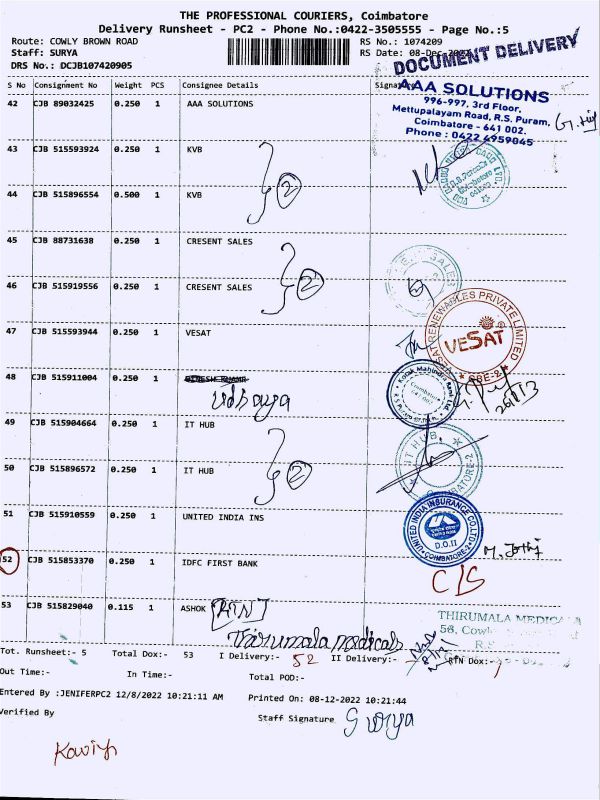 THE PROFESSIONAL COURIERS, Coimbatore
Delivery Runsheet - PC2 - Phone No.:0422-3505555 - Page No.:5
Route: COWLY BROWN ROAD RS No.: 1074209
Staff: SURYA RS Date: 08-Dec-2022
DRS No.: DCJB107420905
DOCUMENT DELIVERY
S No Consignment No Weight PCS Consignee Details Signature
AAA SOLUTIONS
996-997, 3rd Floor,
Mettupalayam Road, R.S. Puram,
Coimbatore - 641 002.
Phone : 0422 4959045
42 CJB 89032425 0.250 1 AAA SOLUTIONS
43 CJB 515593924 0.250 1 KVB
2
44 CJB 515896554 0.500 1 KVB
45 CJB 88731638 0.250 1 CRESENT SALES
2
46 CJB 515919556 0.250 1 CRESENT SALES
47 CJB 515593944 0.250 1 VESAT
VESAT RENEWABLES PRIVATE LIMITED
VESAT
CBE-2
48 CJB 515911004 0.250 1
Kotak Mahindra Bank Ltd
Coimbatore
49 CJB 515904664 0.250 1 IT HUB
IT HUB
COIMBATORE-2
2
50 CJB 515896572 0.250 1 IT HUB
51 CJB 515910559 0.250 1 UNITED INDIA INS
UNITED INDIA INSURANCE CO.LTD.
D.O.II
COIMBATORE-2
M. Jothi
52 CJB 515853370 0.250 1 IDFC FIRST BANK
C/S
53 CJB 515829040 0.115 1 ASHOK
Thirumala medicals
THIRUMALA MEDICA
58, Cowl
Tot. Runsheet:- 5 Total Dox:- 53 I Delivery:- 52 II Delivery:- RTN Dox:-
Out Time:- In Time:- Total POD:-
Entered By :JENIFERPC2 12/8/2022 10:21:11 AM Printed On: 08-12-2022 10:21:44
Verified By Staff Signature Surya